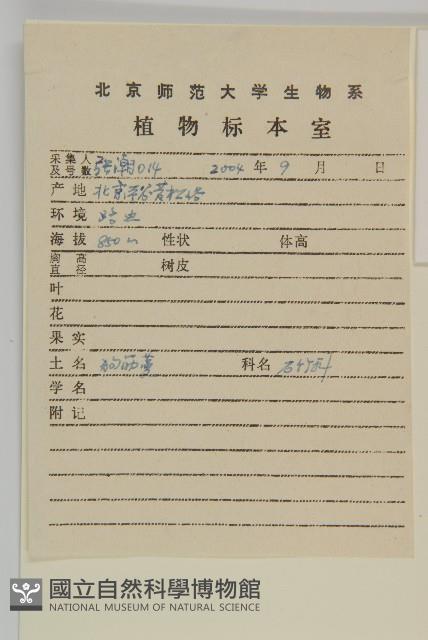 北京师范大学生物系
植物标本室
采集人及号数 张潮014 2004年9月 日
产地 北京平谷黄松峪
环境 路边
海拔 850m 性状 体高
胸高直径 树皮
叶
花
果实
土名 狗筋蔓 科名 石竹科
学名
附记
國立自然科學博物館
NATIONAL MUSEUM OF NATURAL SCIENCE